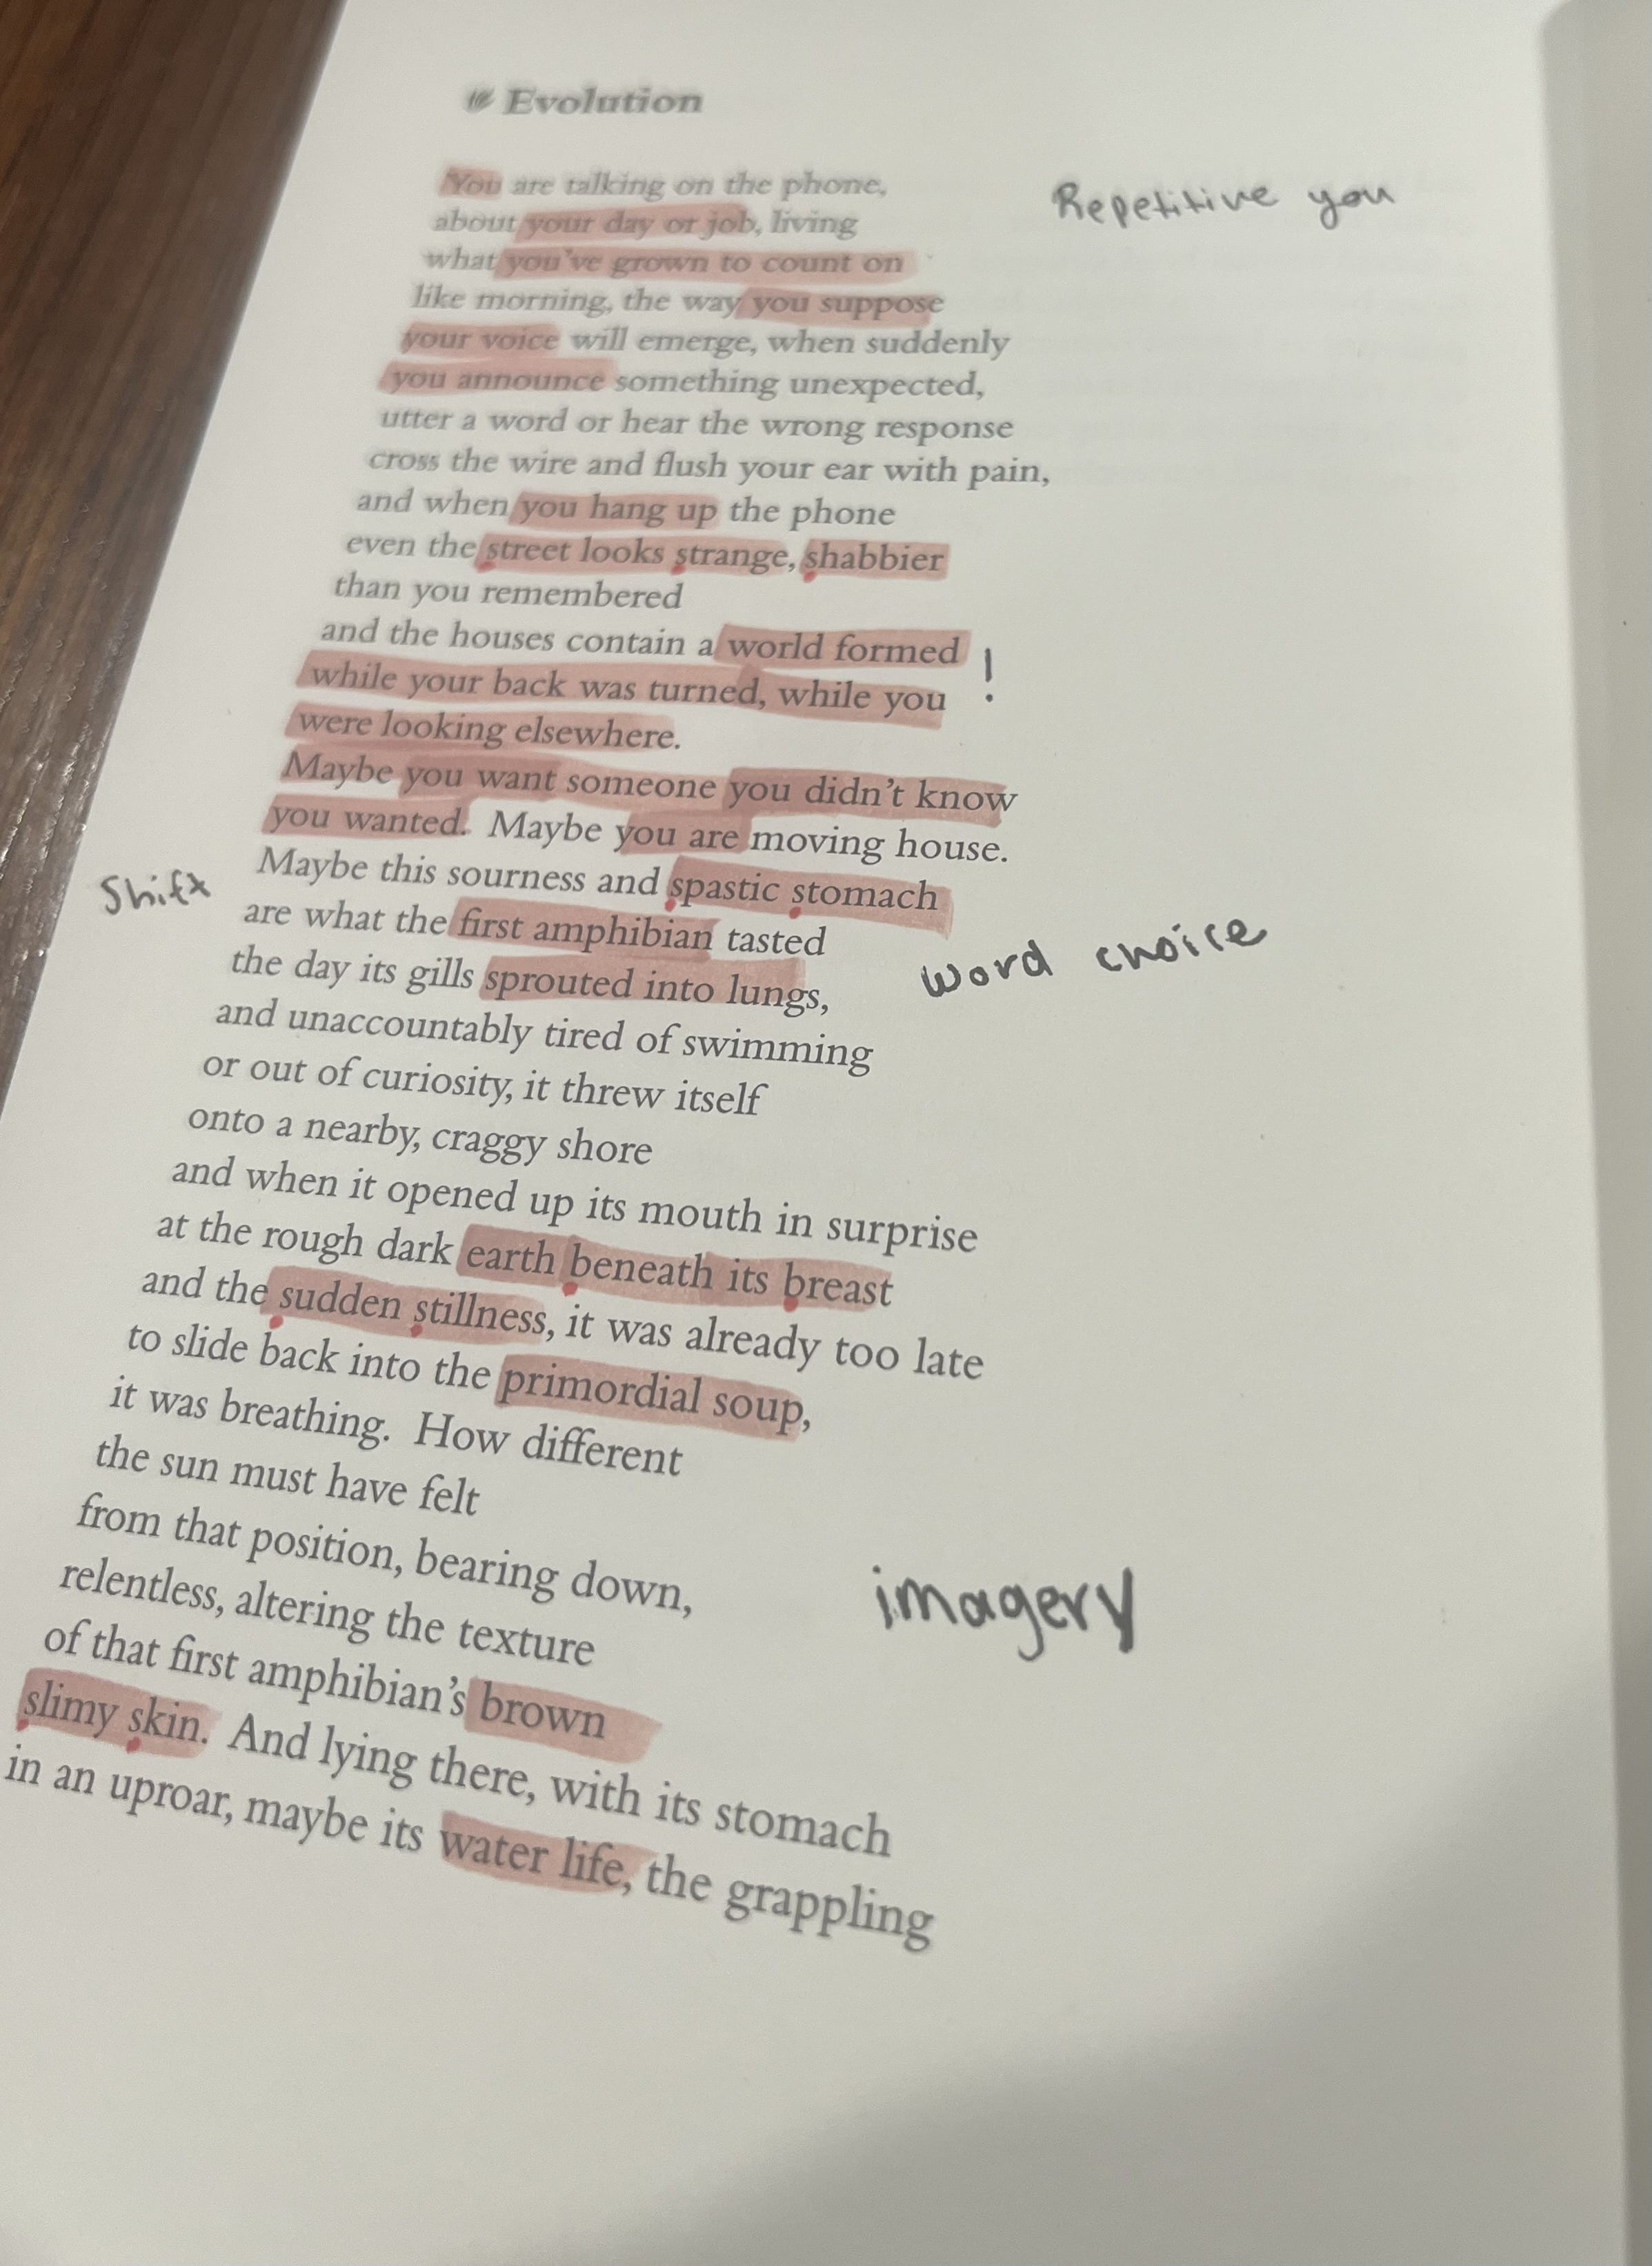 Evolution
You are talking on the phone,
Repetitive you
about your day or job, living
what you've grown to count on
like morning, the way you suppose
your voice will emerge, when suddenly
you announce something unexpected,
utter a word or hear the wrong response
cross the wire and flush your ear with pain,
and when you hang up the phone
even the street looks strange, shabbier
than you remembered
and the houses contain a world formed
!
while your back was turned, while you
were looking elsewhere.
Maybe you want someone you didn't know
you wanted. Maybe you are moving house.
Maybe this sourness and spastic stomach
Shift
are what the first amphibian tasted
word choice
the day its gills sprouted into lungs,
and unaccountably tired of swimming
or out of curiosity, it threw itself
onto a nearby, craggy shore
and when it opened up its mouth in surprise
at the rough dark earth beneath its breast
and the sudden stillness, it was already too late
to slide back into the primordial soup,
it was breathing. How different
the sun must have felt
from that position, bearing down,
imagery
relentless, altering the texture
of that first amphibian's brown
slimy skin. And lying there, with its stomach
in an uproar, maybe its water life, the grappling